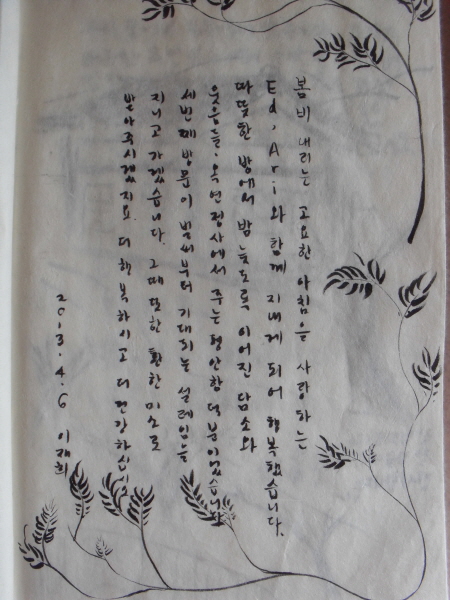 봄비 내리는 고요한 아침을 사랑하는
Ed, Ari와 함께 지내게 되어 행복했습니다.
따뜻한 방에서 밤 늦도록 이어진 담소와
웃음들. 옥연정사에서 주는 평안함 덕분이었습니다
세번째 방문이 벌써부터 기대되는 설레임을
지니고 가겠습니다. 그때 또한 환한 미소로
받아주시겠지요. 더 행복하시고 더 건강하십시오
2013.4.6 이재희